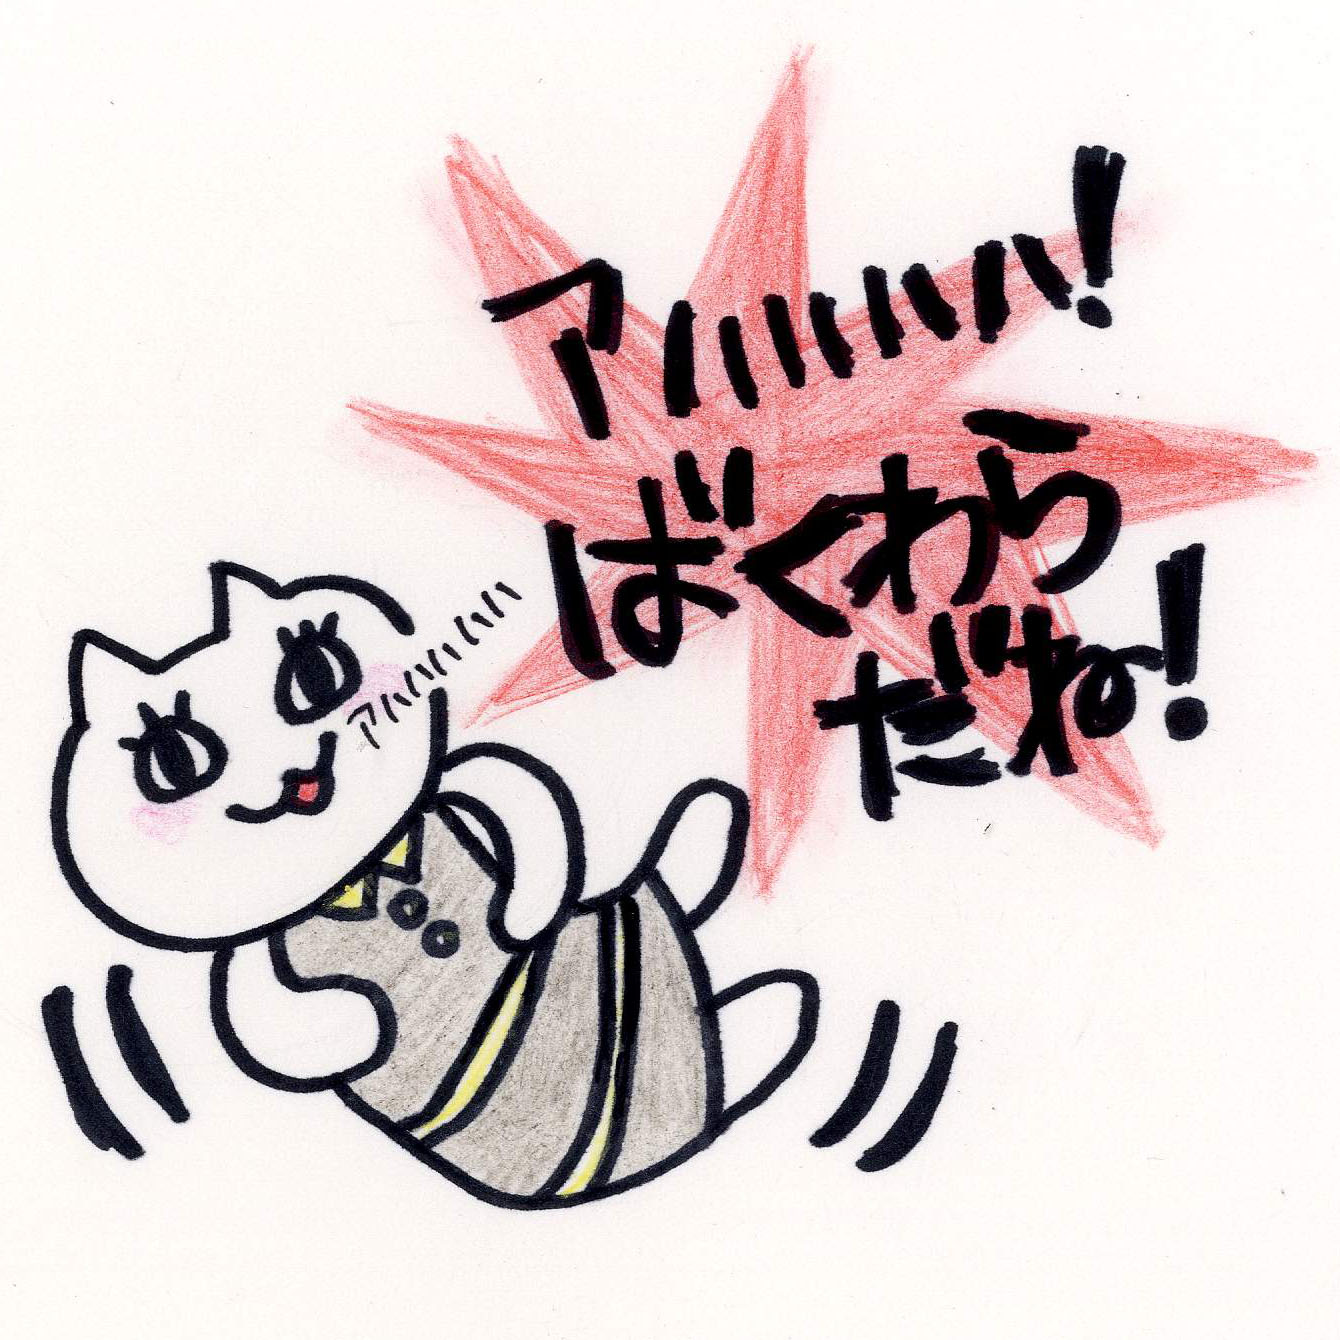 アハハハハ!
ばくわら
だね!
アハハハハ